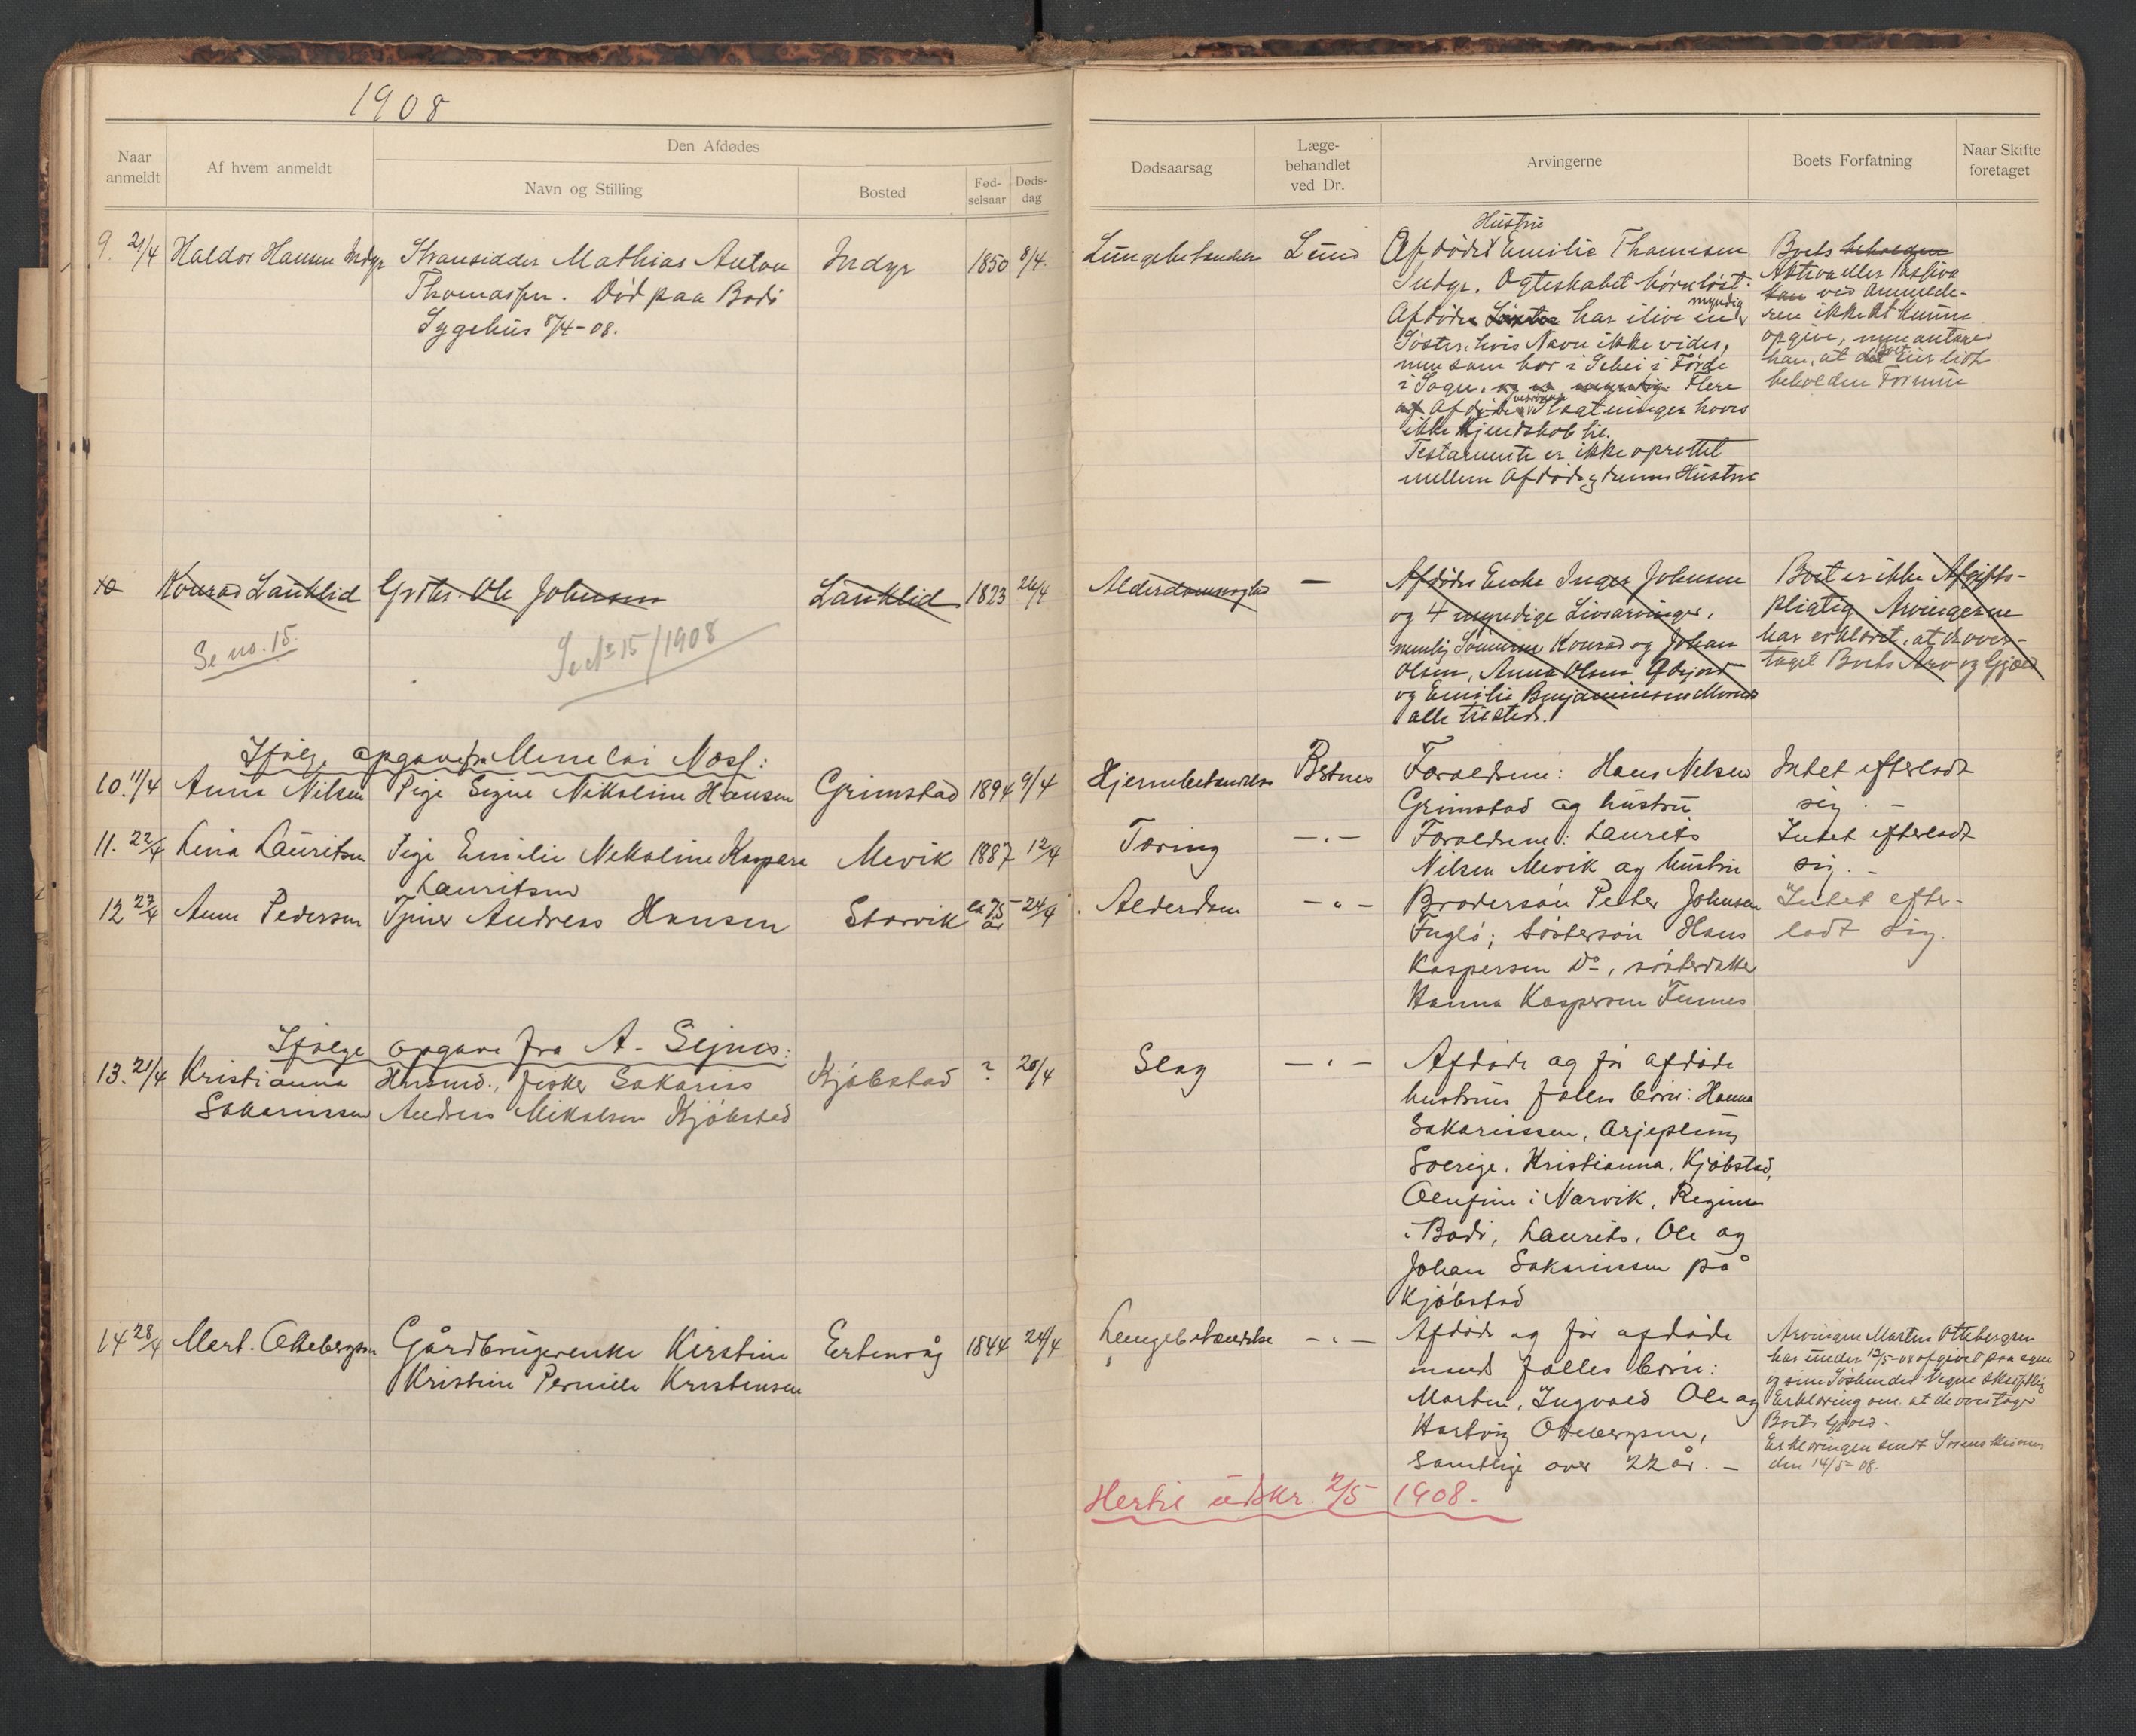 1908
Naar anmeldt
Af hvem anmeldt
Den Afdødes
Navn og Stilling
Bosted
Fød-selsaar
Døds-dag
Dødsaarsag
Læge-behandlet ved Dr.
Arvingerne
Boets Forfatning
Naar Skifte foretaget
9. 21/4 Haldor Hansen Indyr Strandsidder Mathias Anton Indyr 1850 8/4.
Thomassen. Død paa Bodø
Sygehus 8/4-08.
Lungebetændelse Lund
Hustru
Afdødes Emilie Thomasen
Indyr. Ægteskabet børnløst.
myndig
Afdøde Søster har ilive en
Søster, hvis Navn ikke vides,
men som bor i Førde
i Sogn, og er myndig. Flere
af Afdødes Slægtninger haves
ikke Kjendskab til.
Testamente er ikke oprettet
mellem Afdøde og dennes Hustru
Boets beholdne
Aktiva eller Passiva
kan ved Anmelde-
ren ikke at kunne
opgive, men antager
han, at det er lidt
beholden Formue
10 Konrad Lauklid Grdbr. Ole Johnsen Lauklid 1823 26/4
Se no. 15.
Se No 15/1908
Alderdomssvaghed —
Afdødes Enke Inger Johnsen
og 4 myndige Livsarvinger,
nemlig Sønnerne Konrad og Johan
Olsen, Anna Olsen
og Emilie Benjaminsen
alle tilstede.
Boet er ikke Afgifts-
pligtig Arvingerne
har erklæret, at de over-
taget Boets Arv og Gjæld
Ifølge opgave fra Menelai Noss:
10. 11/4 Anna Nilsen Pige Signe Nikoline Hansen Grimstad 1894 9/4
Hjernebetændelse Botnes Forældrene: Hans Nilsen
Grimstad og hustru
Intet efterladt
sig. —
11. 22/4 Lina Lauritsen Pige Emilie Nikoline Kaspara Mevik 1887 12/4
Lauritsen
Tæring — " — Forældrene: Laurits
Nilsen Mevik og hustru
Intet efterladt
sig. —
12 27/4 Anne Pedersen Tjener Andreas Hansen Storvik ca 75 år 24/4
Alderdom — " — Brodersøn Peter Johnsen
Fuglø; søstersøn Hans
Kaspersen Do, søsterdatter
Hanna Kaspersen Finnes
Intet efter-
ladt sig.
Ifølge opgave fra A. Sejnes:
13. 21/4 Kristianna Husmd., fisker Sakarias Kjøbstad ? 20/4
Sakariassen Andreas Mikalsen Kjøbstad
Slag — " — Afdøde og før afdøde
hustrus fælles børn: Hanna
Sakariassen, Arjeplung
Sverige, Kristianna, Kjøbstad,
Olufine i Narvik, Regine
i Bodø, Laurits, Ole og
Johan Sakariassen på
Kjøbstad
14 28/4 Mart. Ottebergsen Gårdbrugerenke Kirstine Ertenvåg 1844 24/4
Kristine Pernille Kristensen
Lungebetændelse — " — Afdøde og før afdøde
mands fælles børn:
Martin, Ingvald Ole og
Hartvig Ottebergsen,
samtlige over 22 år. —
Arvingen Martin Ottebergsen
har under 12/5-08 opgivet paa egne
og sine Søskendes Vegne skriftlig
Erklæring om, at de overtager
Boets Gjæld.
Erklæringen sendt Sorenskriveren
den 14/5-08.
Hertil udskr. 2/5 1908.